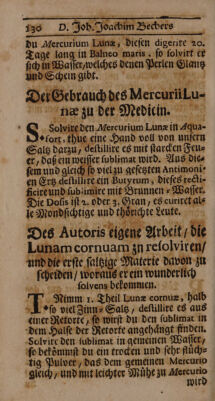 130 D. Joh. Joachim Bechers
du Mercurium Lunæ, diesen digerire 20.
Tage lang in Balneo maris, so solvirt er
sich in Wasser, welches denen Perlen Glantz
und Schein gibt.
Der Gebrauch des Mercurii Lu-
næ zu der Medicin.
Solvire den Mercurium Lunæ in Aqua-
fort, thue eine Hand voll von unsern
Saltz darzu, destillire es mit starcken Feu-
er, daß ein weisser sublimat wird. Aus die-
sem und gleich so viel zu gesetzten Antimoni-
en Ertz destillire ein Butyrum, dieses recti-
ficire und sublimire mit Brunnen-Wasser.
Die Dosis ist 2. oder 3. Gran, es curiret al-
le Mondsichtige und thörichte Leute.
Des Autoris eigene Arbeit, die
Lunam cornuam zu resolviren/
und die erste saltzige Materie davon zu
scheiden/ woraus er ein wunderlich
solvens bekommen.
Nimm 1. Theil Lunæ cornuæ, halb
so viel Zinn-Saltz, destillire es aus
einer Retorte, so wirst du den sublimat in
dem Halse der Retorte angehängt finden.
Solvire den sublimat in gemeinen Wasser,
so bekömmst du ein trocken und sehr flüch-
tig Pulver, das dem gemeinen Mercurio
gleich, und mit leichter Mühe zu Mercurio
wird